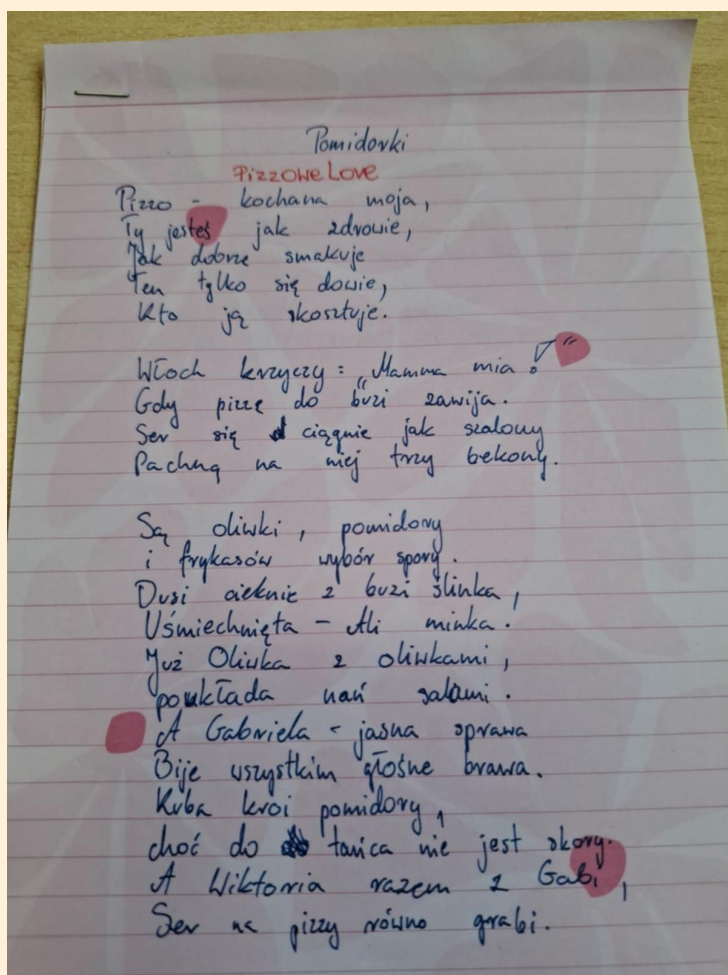 Pomidorki
PizzOwe Love
Pizzo - kochana moja,
Ty jesteś jak zdrowie,
Jak dobrze smakuje
Ten tylko się dowie,
Kto ją skosztuje.
Włoch krzyczy: „Mamma mia!”
Gdy pizzę do buzi zawija.
Ser się ciągnie jak szalony
Pachną na niej trzy bekony.
Są oliwki, pomidory
i frykasów wybór spory.
Dusi cieknie z buzi ślinka,
Uśmiechnięta - Ali minka.
Już Oliwka z oliwkami,
poukłada nań salami.
A Gabriela - jasna sprawa
Bije wszystkim głośne brawa.
Kuba kroi pomidory,
choć do tańca nie jest skory.
A Wiktoria razem z Gabi,
Ser na pizzy równo grabi.